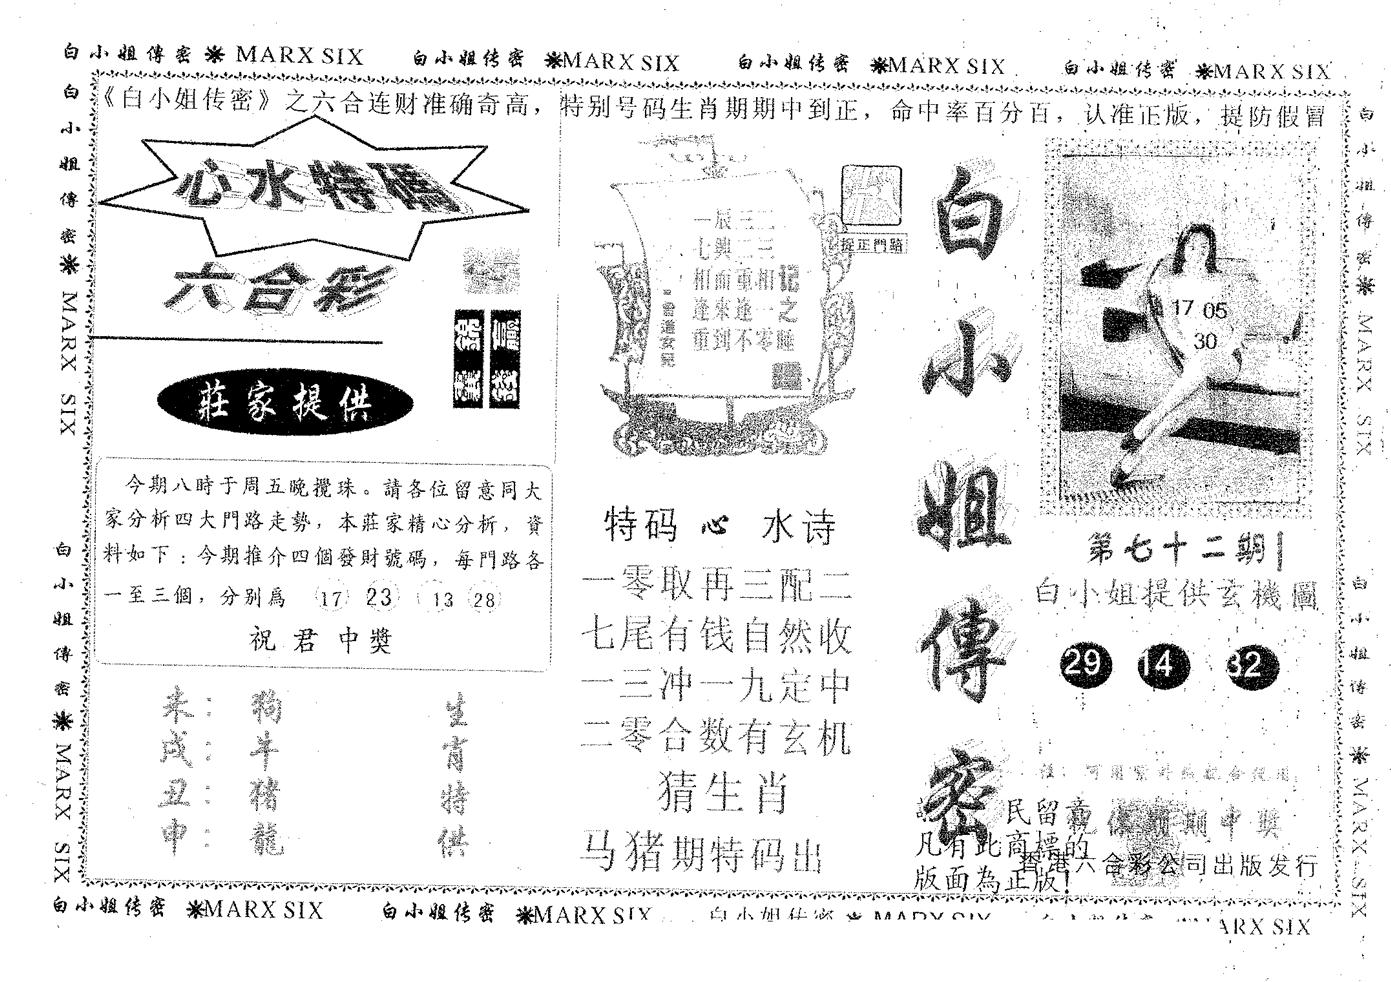 白小姐傳密 MARX SIX 白小姐传密 MARX SIX 白小姐传密 MARX SIX 白小姐传密 MARX SIX
《白小姐传密》之六合连财准确奇高，特别号码生肖期期中到正，命中率百分百，认准正版，提防假冒
白小姐傳密 MARX SIX
白小姐傳密 MARX SIX
心水特碼
六合彩
莊家提供
今期八時于周五晚攪珠。請各位留意同大
家分析四大門路走勢，本莊家精心分析，資
料如下：今期推介四個發財號碼，每門路各
一至三個，分别爲 17 23 13 28
祝君中獎
未：狗 生
戌：牛 肖
丑：猪 特
申：龍 供
一辰三二
七與二三
相面重相记
逢來逢一之
重到不零睡
捉正門路
特码心水诗
一零取再三配二
七尾有钱自然收
一三冲一九定中
二零合数有玄机
猜生肖
马猪期特码出
白小姐傳密
民留意
凡有此商標的
版面為正版!
17 05
30
第七十二期
白小姐提供玄機圖
29 14 32
期中獎
香港六合彩公司出版发行
白小姐傳密 MARX SIX
白小姐傳密 MARX SIX
白小姐传密 MARX SIX 白小姐传密 MARX SIX 白小姐传密 MARX SIX MARX SIX